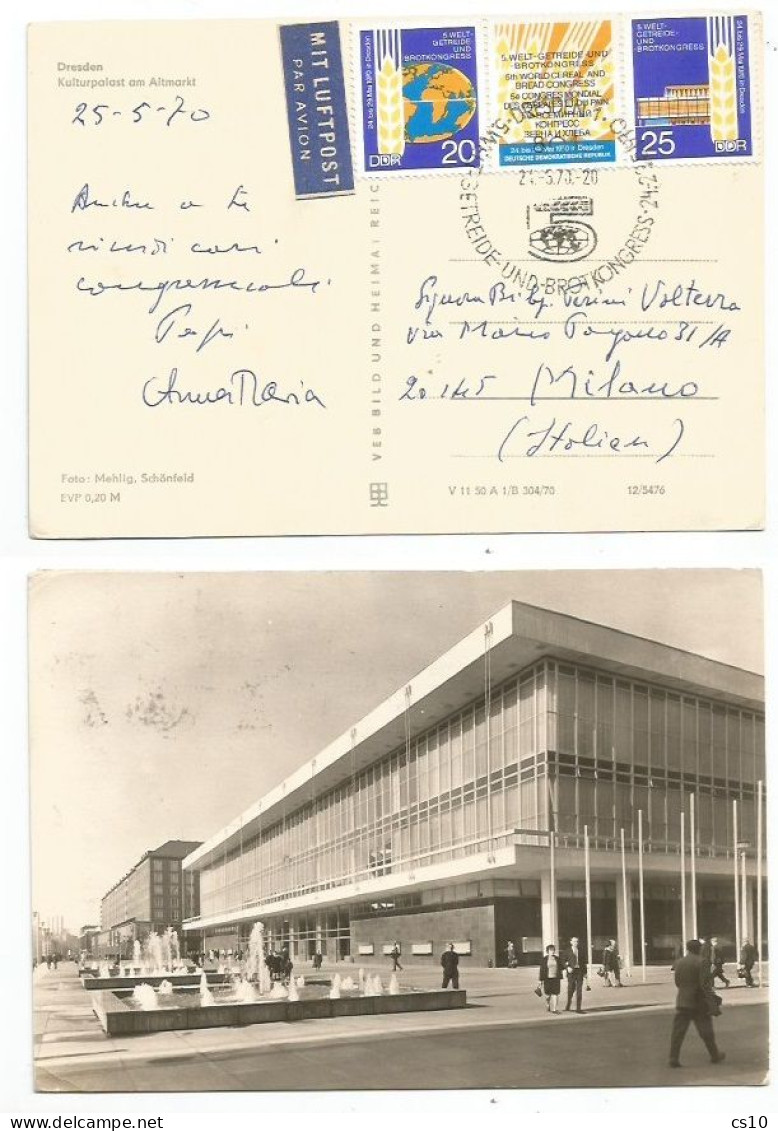 Dresden
Kulturpalast am Altmarkt
25-5-70
MIT LUFTPOST
PAR AVION
24. bis 29. Mai 1970 in Dresden
5. WELT-
GETREIDE-
UND
BROTKONGRESS
DDR
20
5. WELT-GETREIDE-UND
BROTKONGRESS
5th WORLD CEREAL AND
BREAD CONGRESS
5e CONGRES MONDIAL
DES CEREALES ET DU PAIN
5-й ВСЕМИРНЫЙ
КОНГРЕСС
ЗЕРНА И ХЛЕБА
24. bis 29. Mai 1970 in Dresden
DEUTSCHE DEMOKRATISCHE REPUBLIK
5. WELT-
GETREIDE-UND
BROTKONGRESS
24. bis 29. Mai 1970 in Dresden
DDR
25
5. WELT-GETREIDE-UND-BROTKONGRESS·24.-2
5
Anche a te
ricordi cari
congressuali
AnnaMaria
VEB BILD UND HEIMAT REIC
Volterra
31/A
20145 Milano
(Italien)
Foto: Mehlig, Schönfeld
EVP 0,20 M
V 11 50 A 1/B 304/70
12/5476
cs10